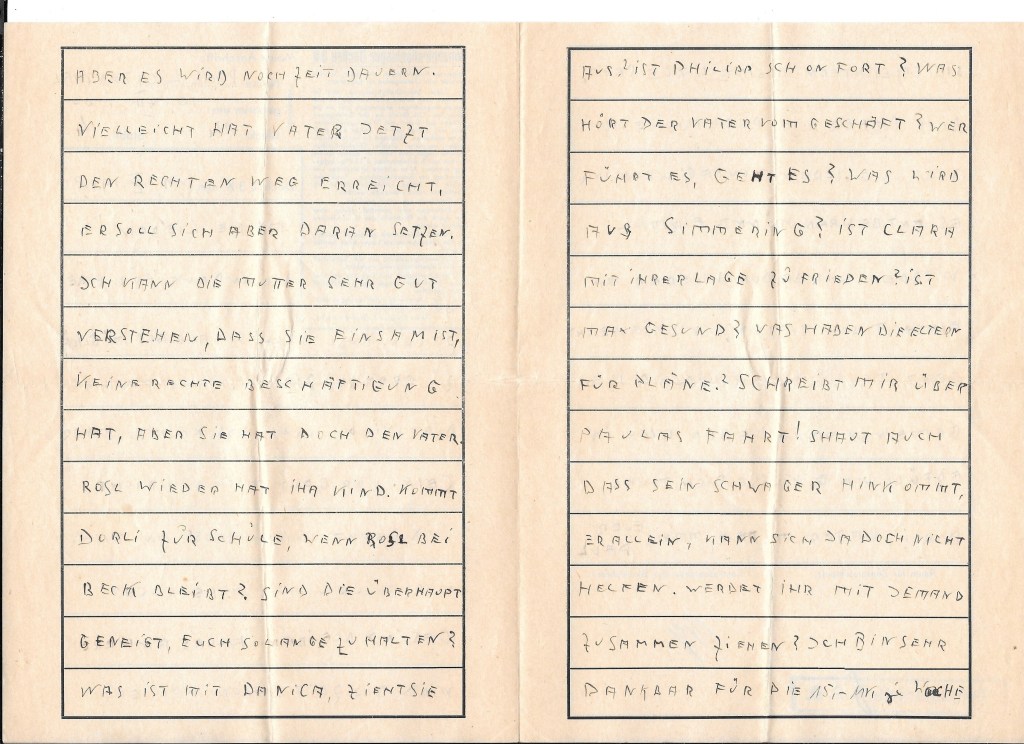 ABER ES WIRD NOCH ZEIT DAUERN.
VIELLEICHT HAT VATER JETZT
DEN RECHTEN WEG ERREICHT,
ER SOLL SICH ABER DARAN SETZEN.
ICH KANN DIE MUTTER SEHR GUT
VERSTEHEN, DASS SIE EINSAM IST,
KEINE RECHTE BESCHÄFTIGUNG
HAT, ABER SIE HAT DOCH DEN VATER.
ROSL WIEDER HAT IHR KIND. KOMMT
DORLI ZUR SCHULE, WENN ROSL BEI
BECK BLEIBT? SIND DIE ÜBERHAUPT
GENEIGT, EUCH SOLANGE ZU HALTEN?
WAS IST MIT DANICA, ZIEHT SIE
AUS? IST PHILIPP SCHON FORT? WAS
HÖRT DER VATER VOM GESCHÄFT? WER
FÜHRT ES, GEHT ES? WAS WIRD
AUS SIMMERING? IST CLARA
MIT IHRER LAGE ZUFRIEDEN? IST
MAX GESUND? WAS HABEN DIE ELTERN
FÜR PLÄNE? SCHREIBT MIR ÜBER
PAULAS FAHRT! SHAUT AUCH
DASS SEIN SCHWAGER HINKOMMT,
ER ALLEIN, KANN SICH DA DOCH NICHT
HELFEN. WERDET IHR MIT JEMAND
ZUSAMMEN ZIEHEN? ICH BIN SEHR
DANKBAR FÜR DIE WOCHE